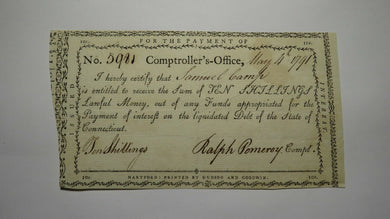 FOR THE PAYMENT OF
No. 5981 Comptroller's-Office, May 4th 1791
I hereby certify that Samuel Camp
is entitled to receive the Sum of TEN SHILLINGS
Lawful Money, out of any Funds appropriated for the
Payment of interest on the liquidated Debt of the State of
Connecticut.
Ten Shillings Ralph Pomeroy Compt.
HARTFORD: PRINTED BY HUDSON AND GOODWIN.
ISSUED
INTEREST